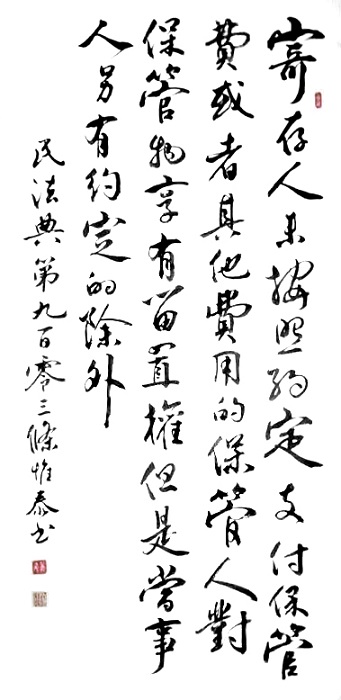 寄存人未按照約定支付保管
費或者其他費用的保管人對
保管物享有留置權但是當事
人另有約定的除外
民法典第九百零三條惟泰书